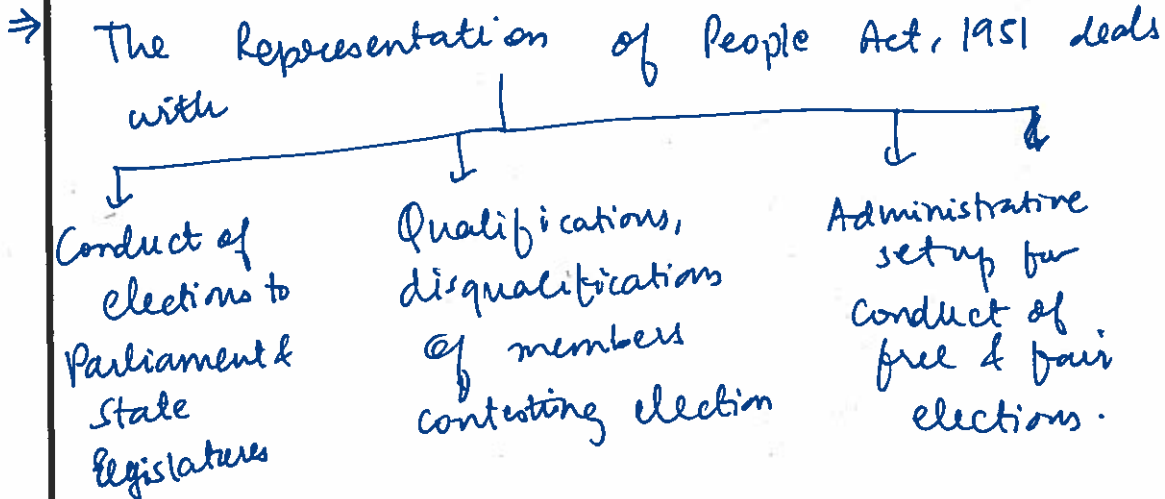 ⇒ The Representation of People Act, 1951 deals
with
Conduct of
elections to
Parliament &
State
legislatures
Qualifications,
disqualifications
of members
contesting election
Administrative
setup for
conduct of
free & fair
elections.